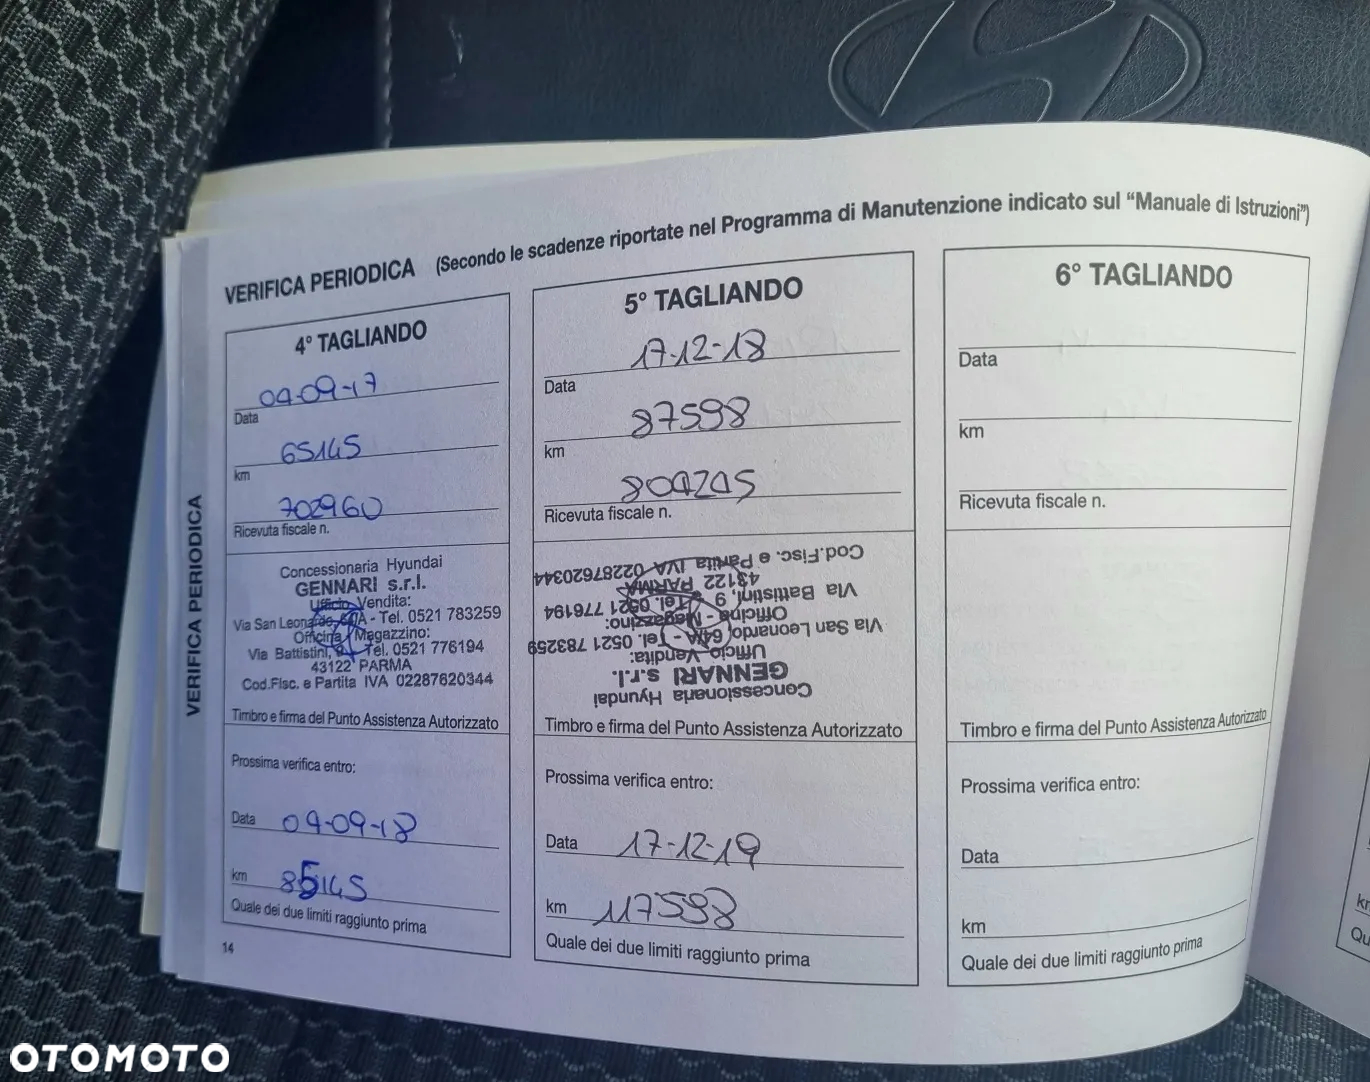 VERIFICA PERIODICA (Secondo le scadenze riportate nel Programma di Manutenzione indicato sul “Manuale di Istruzioni”)
VERIFICA PERIODICA
4° TAGLIANDO
04-09-17
Data
65145
km
702960
Ricevuta fiscale n.
Concessionaria Hyundai
GENNARI s.r.l.
Ufficio Vendita:
Via San Leonardo, 64/A - Tel. 0521 783259
Officina / Magazzino:
Via Battistini, 9 - Tel. 0521 776194
43122 PARMA
Cod.Fisc. e Partita IVA 02287620344
Timbro e firma del Punto Assistenza Autorizzato
Prossima verifica entro:
Data 04-09-18
km 85145
Quale dei due limiti raggiunto prima
14
5° TAGLIANDO
17-12-18
Data
87598
km
804245
Ricevuta fiscale n.
Concessionaria Hyundai
GENNARI s.r.l.
Ufficio Vendita:
Via San Leonardo, 64/A - Tel. 0521 783259
Officina - Magazzino:
Via Battistini, 9 - Tel. 0521 776194
43122 PARMA
Cod.Fisc. e Partita IVA 02287620344
Timbro e firma del Punto Assistenza Autorizzato
Prossima verifica entro:
Data 17-12-19
km 117598
Quale dei due limiti raggiunto prima
6° TAGLIANDO
Data
km
Ricevuta fiscale n.
Timbro e firma del Punto Assistenza Autorizzato
Prossima verifica entro:
Data
km
Quale dei due limiti raggiunto prima
OTOMOTO